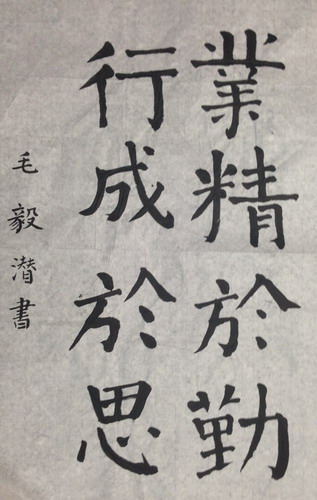 業精於勤
行成於思
毛毅潜書